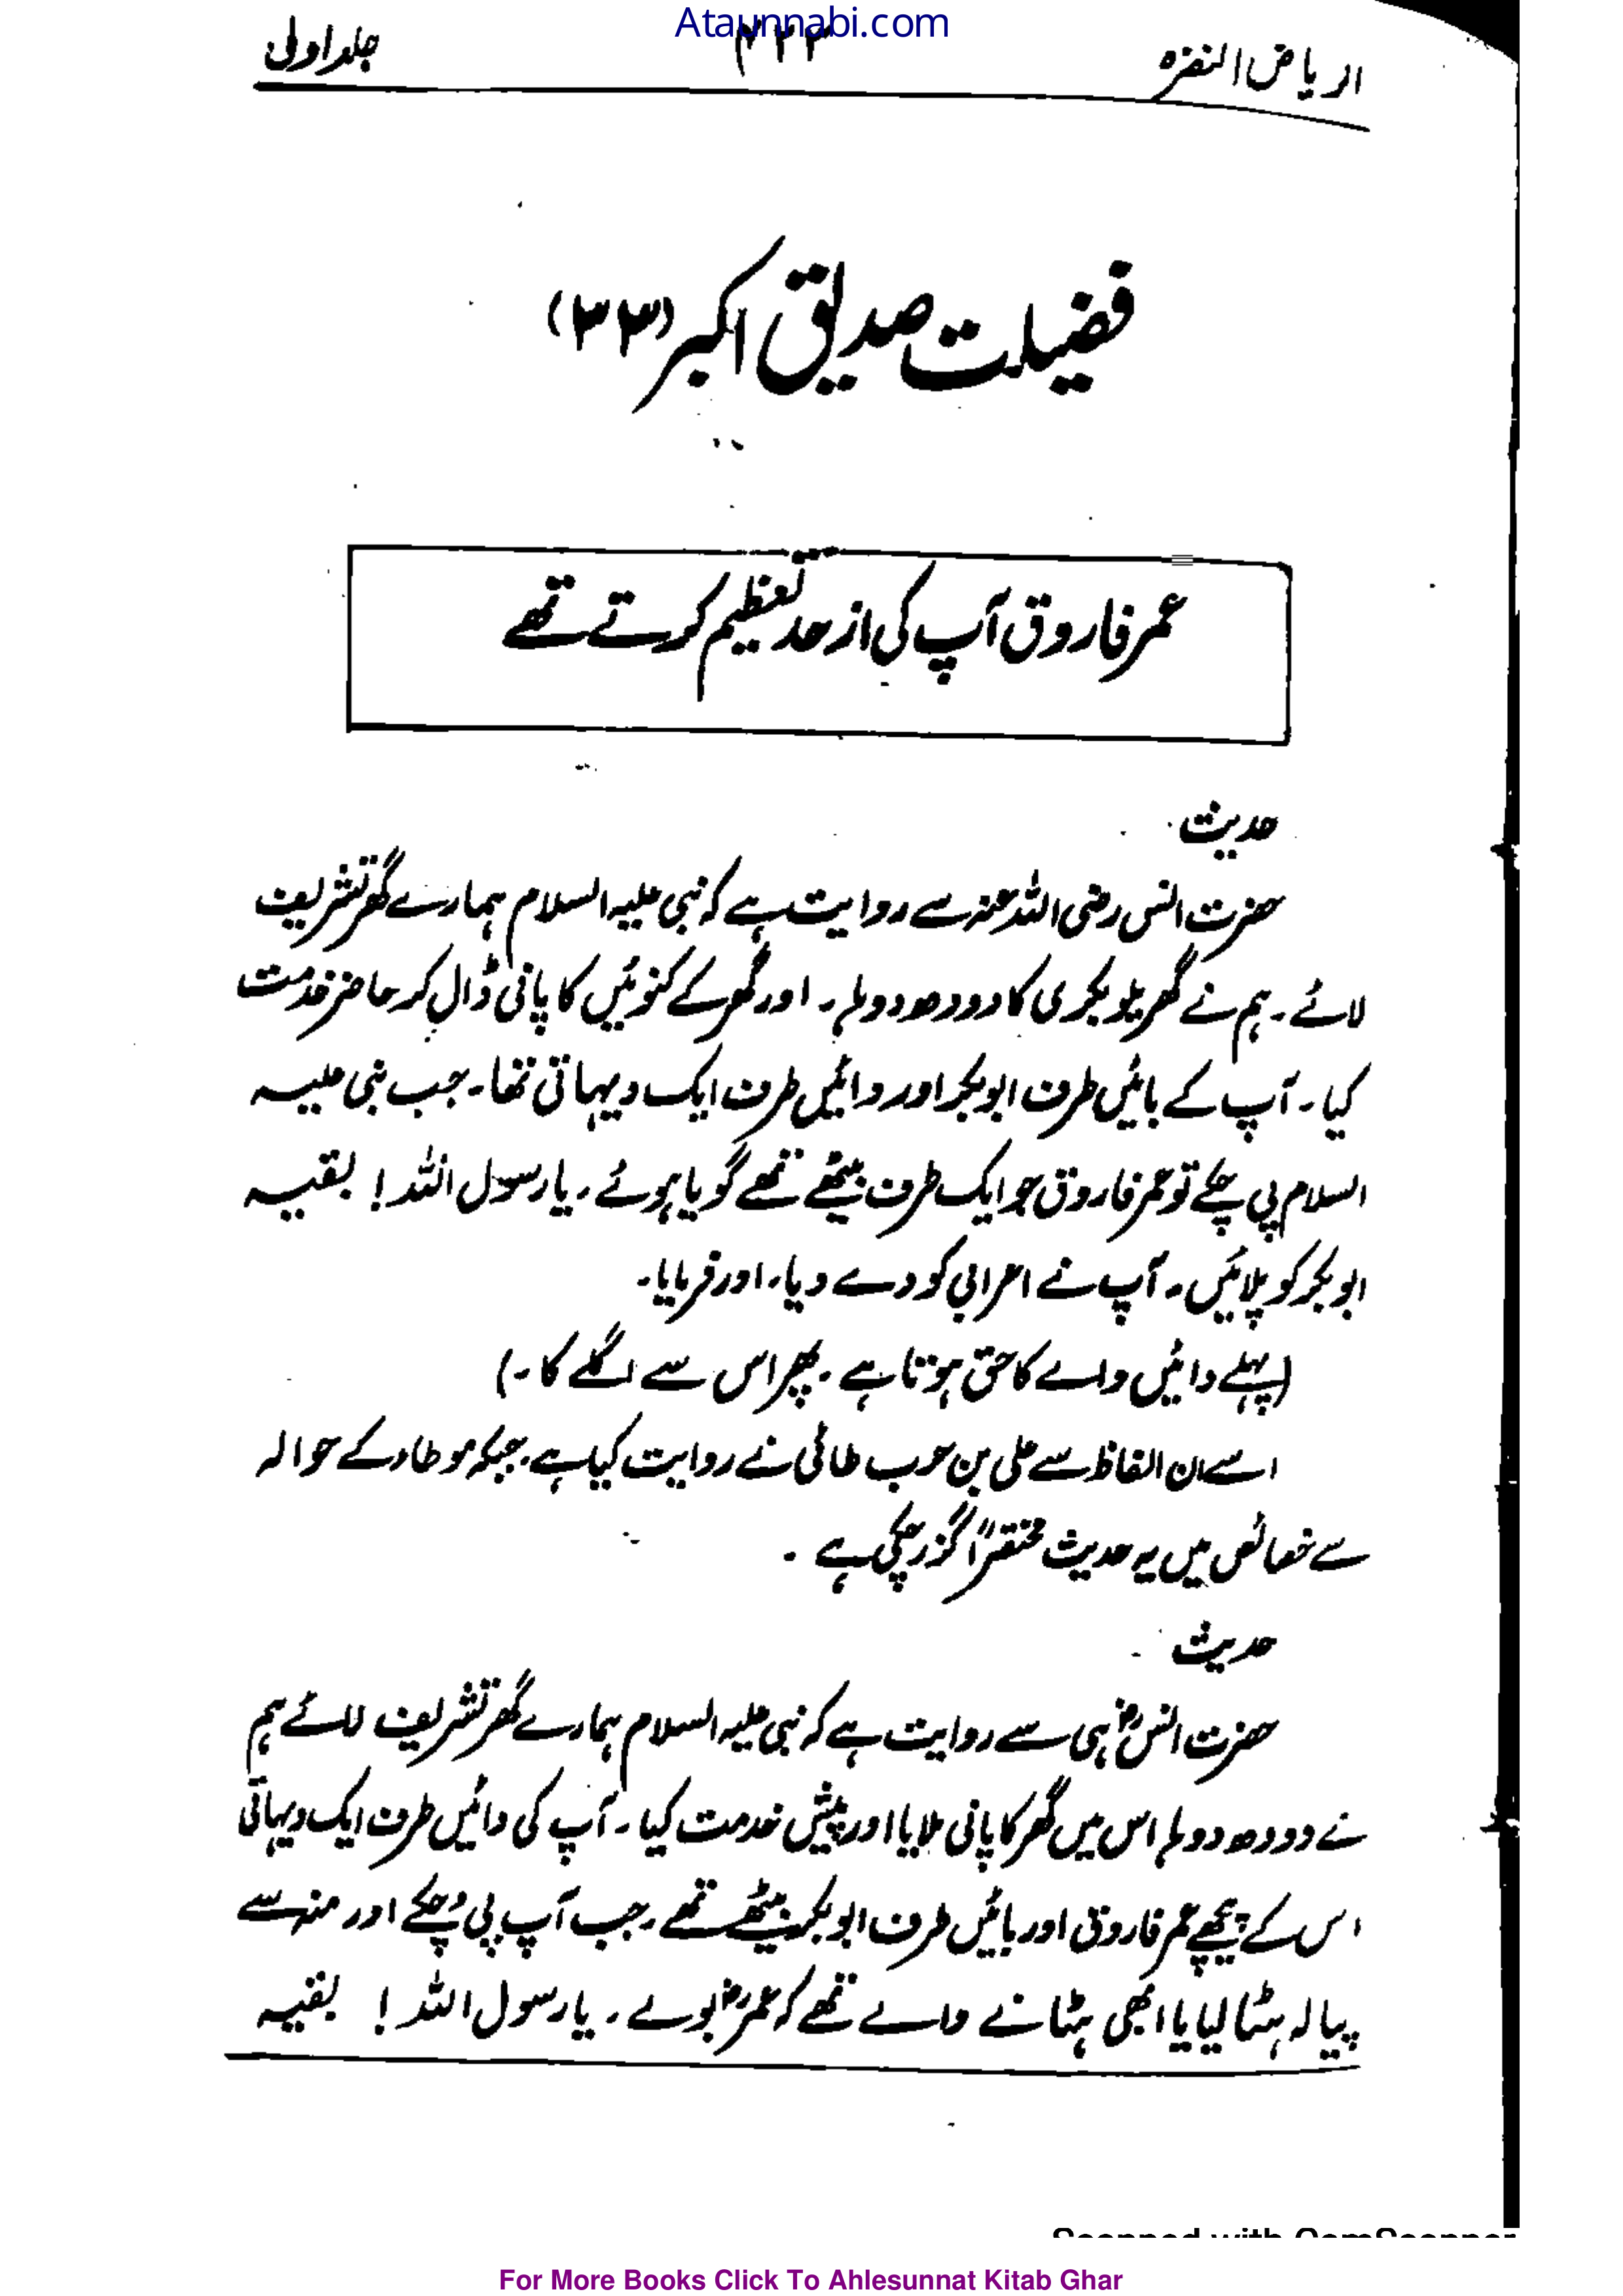 Ataunnabi.com
الریاض النضرہ ۴۲۳ جلد اولی
فضیلت صدیق اکبر (۳۳)
عمر فاروق آپ کی از حد تعظیم کرتے تھے
حدیث
حضرت انس رضی اللہ عنہ سے روایت ہے کہ نبی علیہ السلام ہمارے گھر تشریف
لائے۔ ہم نے گھریلو بکری کا دودھ دوہا۔ اور گھر کے کنوئیں کا پانی ڈال کر حاضر خدمت
کیا۔ آپ کے بائیں طرف ابوبکر اور دائیں طرف ایک دیہاتی تھا۔ جب نبی علیہ
السلام پی چکے تو عمر فاروق جو ایک طرف بیٹھے تھے گویا ہوئے۔ یا رسول اللہ! بقیہ
ابوبکر کو پلائیں۔ آپ نے اعرابی کو دے دیا۔ اور فرمایا۔
(پہلے دائیں والے کا حق ہوتا ہے۔ پھر اس سے اگلے کا۔)
اسے ان الفاظ سے علی بن حرب طائی نے روایت کیا ہے۔ جبکہ موطاء کے حوالہ
سے خصائص میں یہ حدیث مختصراً گزر چکی ہے۔
حدیث
حضرت انسؓ ہی سے روایت ہے کہ نبی علیہ السلام ہمارے گھر تشریف لائے ہم
نے دودھ دوہا اس میں گھر کا پانی ملایا اور پیش خدمت کیا۔ آپ کی دائیں طرف ایک دیہاتی
اس کے پیچھے عمر فاروق اور بائیں طرف ابوبکر بیٹھے تھے۔ جب آپ پی چکے اور منہ سے
پیالہ ہٹا لیا یا ابھی ہٹانے والے تھے کہ عمرؓ بولے۔ یا رسول اللہ! بقیہ
Scanned with CamScanner
For More Books Click To Ahlesunnat Kitab Ghar